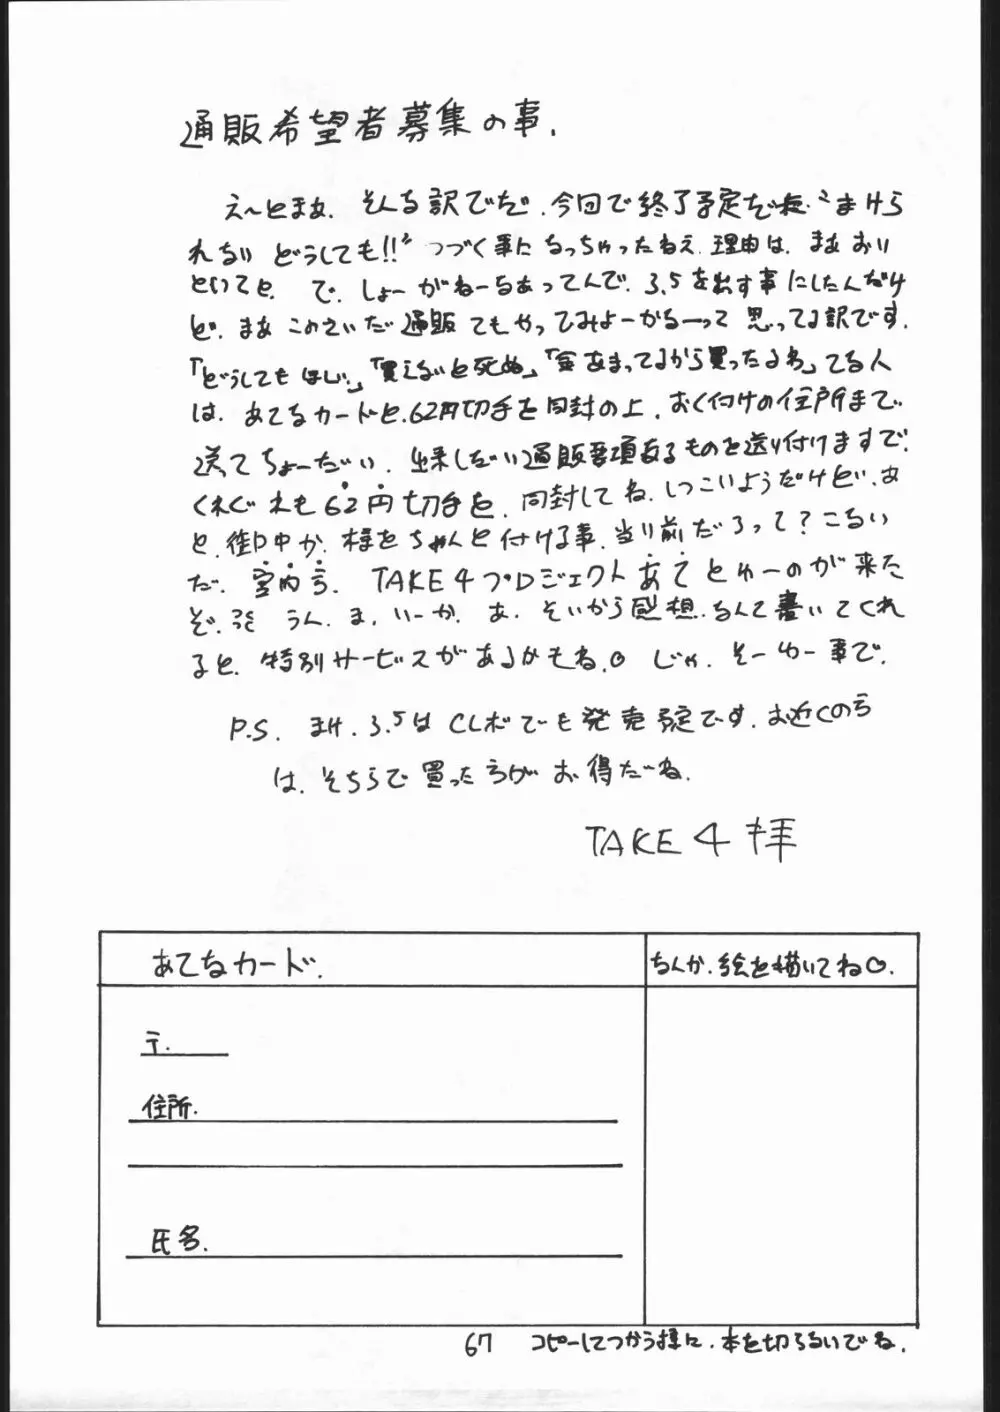 通販希望者募集の事.
え〜とまぁ. そんな訳でだ. 今回で終了予定だった"まけら
れない どうしても!!" つづく事になっちゃったねえ. 理由は. まあ おい
といてと. で. しょーがねーなあってんで. 3.5を出す事にしたんだけ
ど. まあ このさいだ 通販でもやってみよーかなーって 思ってる訳です.
「どうしてもほしい」「買えないと死ぬ」「金あまってるから買ったるわ」てな人
は. あてなカードと. 62円切手を同封の上. おく付けの住所まで
送ってちょーだい. 出来しだい通販要項なるものを送り付けますで.
くれぐれも62円切手を. 同封してね. しつこいようだけど. あ
と. 御中か. 様をちゃんと付ける事. 当り前だろって? こないだ
だ. 宮内 TAKE4プロジェクトあてとゆーのが来た
ぞ. うん. ま. いーか. あ. そいから感想なんて書いてくれ
ると. 特別サービスがあるかもね.♡ じゃ. そーゆー事で.
P.S. まけ. 3.5はCLボでも発売予定です. お近くのち
は. そちらで買ったほうがお得だね.
TAKE4拝
あてなカード.
なんか. 絵を描いてね♡.
〒.
住所.
氏名.
67 コピーしてつかう様に. 本を切らないでね.